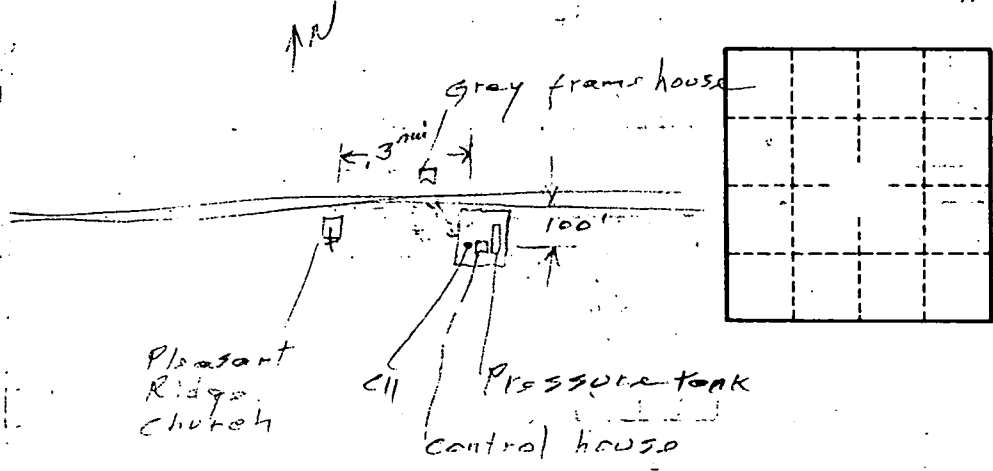 N
Grey frame house
.3 mi
100'
Pleasant
Ridge
Church
C11
Pressure tank
Control house